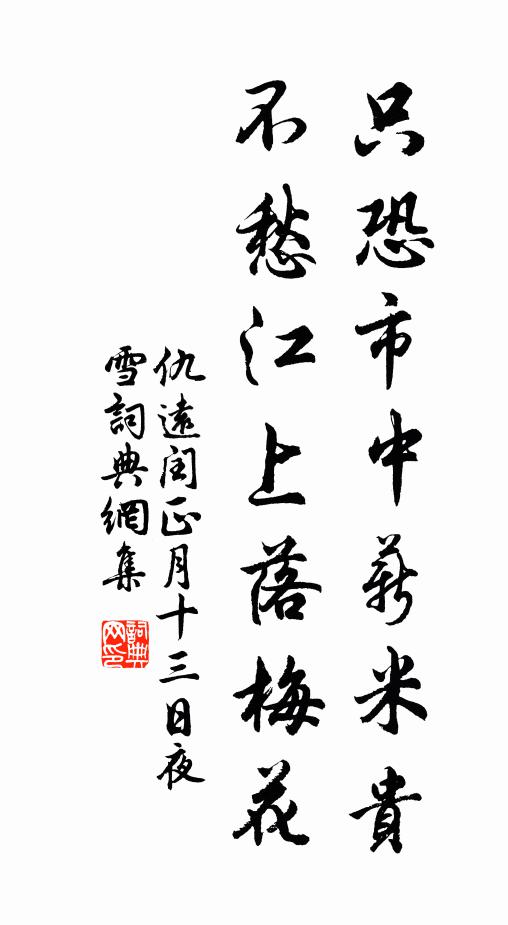 只恐市中薪米貴
不愁江上落梅花
仇遠閏正月十三日夜
雪詞典網集
詞典网印